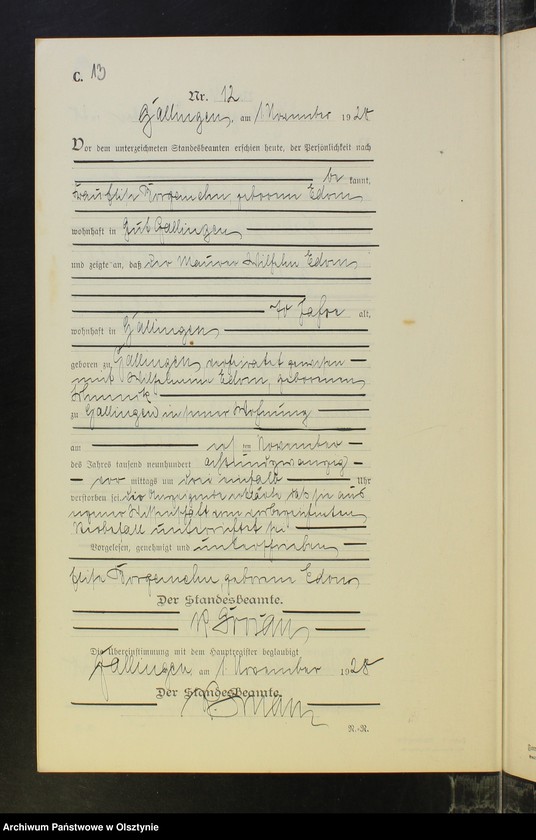 C. 13
Nr. 12
Gallingen, am 1 November 1928
Vor dem unterzeichneten Standesbeamten erschien heute, der Persönlichkeit nach
be kannt,
Frau Elise geborene
wohnhaft in Gut Gallingen
und zeigte an, daß der Maurer Wilhelm
70 Jahre alt,
wohnhaft in Gallingen
geboren zu Gallingen, verheiratet gewesen
mit Wilhelmine geborenen
zu Gallingen in seiner Wohnung
am November
des Jahres tausend neunhundert achtundzwanzig
vor mittags um drei einhalb Uhr
verstorben sei. Die Anzeigende erklärte daß sie aus
eigener Wissenschaft von vorbezeichneten
Sterbefall unterrichtet sei
Vorgelesen, genehmigt und unterschrieben
Elise geborene
Der Standesbeamte.
Die Übereinstimmung mit dem Hauptregister beglaubigt
Gallingen, am 1 November 1928
Der Standesbeamte.
R.-R.
Archiwum Państwowe w Olsztynie